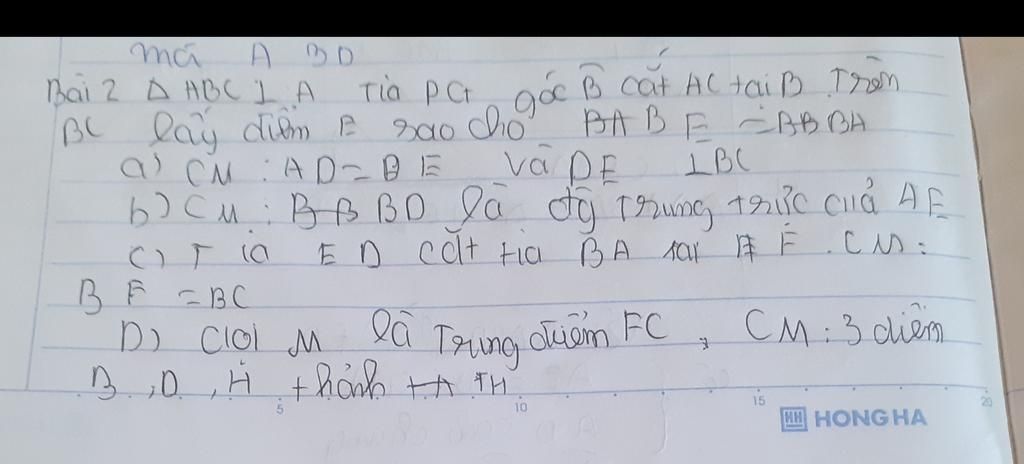 mã A BD
Bài 2 Δ ABC ⊥ A Tia PG góc B̂ cắt AC tại B. Trên
BC lấy điểm E sao cho BAB E = BBBA
a) CM : AD = DE và DE ⊥ BC
b) CM : BBBD là đg Trung trực của AE
c) T ia E D cắt tia BA tại F. CM:
B F = BC
D) Gọi M là Trung điểm FC, CM : 3 điểm
B, D, H thành TH
5 10 15 20
HH HONG HA